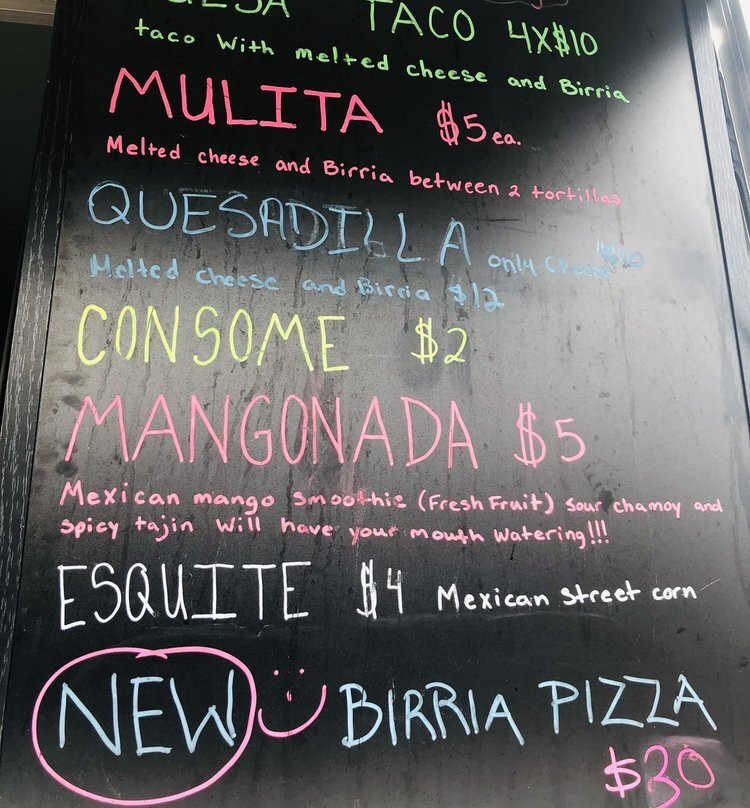 TACO 4X$10
taco with melted cheese and Birria
MULITA $5 ea.
Melted cheese and Birria between 2 tortillas
QUESADILLA only Cheese $10
Melted cheese and Birria $12
CONSOME $2
MANGONADA $5
Mexican mango smoothie (Fresh Fruit) sour chamoy and
spicy tajin will have your mouth watering!!!
ESQUITE $4 Mexican street corn
NEW BIRRIA PIZZA
$30